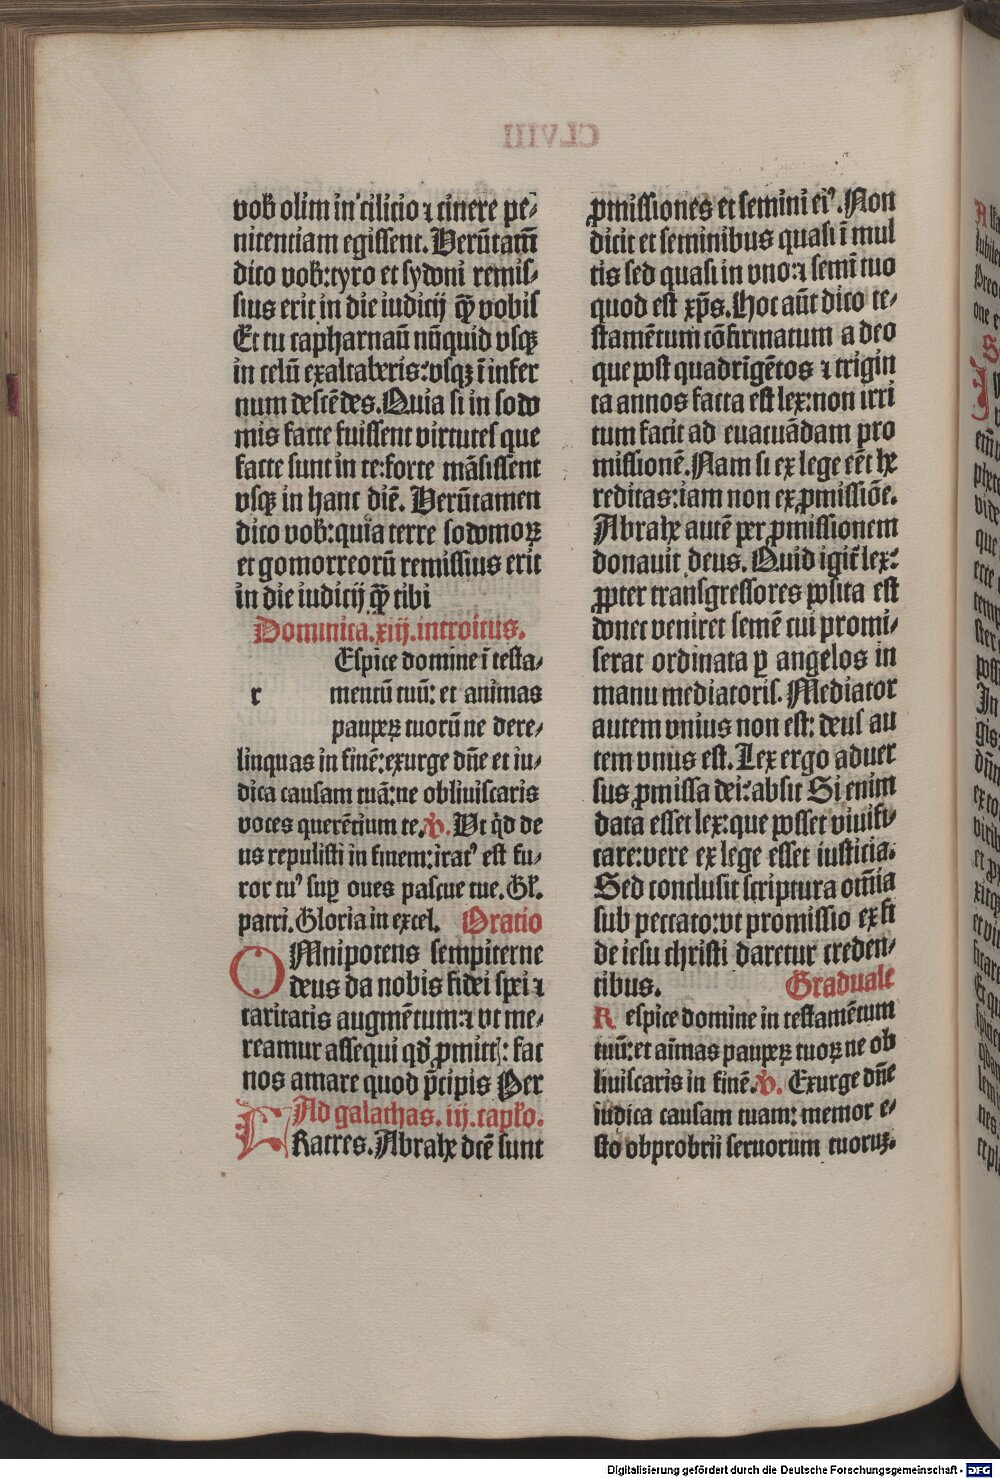 vob olim in cilicio ⁊ cinere pe-
nitentiam egissent. Verūtam̄
dico vob: tyro et sydoni remis-
sius erit in die iudicij qͣꝫ vobis
Et tu capharnaū nūquid vsqꝫ
in celū exaltaberis: vsqꝫ ī infer
num descēdes. Quia si in sodo
mis facte fuissent virtutes que
facte sunt in te: forte māsissent
vsqꝫ in hanc diē. Verūtamen
dico vob: quia terre sodomoꝝ
et gomorreorū remissius erit
in die iudicij qͣꝫ tibi
Dominica. xiij. introitus.
Espice domine ī testa-
r mentū tuū: et animas
pauꝑꝝ tuorū ne dere-
linquas in finē: exurge dn̄e et iu-
dica causam tuā: ne obliuiscaris
voces querētium te. ℣. Vt qͥd de
us repulisti in finem: iratꝰ est fu-
ror tuꝰ suꝑ oues pascue tue. Gl'.
patri. Gloria in excel. Oratio
OMnipotens sempiterne
deus da nobis fidei spei ⁊
caritatis augmētum: ⁊ vt me-
reamur assequi qd̓ ꝓmittꝭ: fac
nos amare quod p̄cipis Per
Ad galathas. iij. capl'o.
FRatres. Abrahe dc̄e sunt
ꝓmissiones et semini eiꝰ. Non
dicit et seminibus quasi ī mul
tis sed quasi in vno: ⁊ semī tuo
quod est xp̄s. Hoc aūt dico te-
stamētum cōfirmatum a deo
que post quadrīgētos ⁊ trigin
ta annos facta est lex: non irri
tum facit ad euacuādam pro
missionē. Nam si ex lege eēt he
reditas: iam non ex ꝓmissiōe.
Abrahe autē per ꝓmissionem
donauit deus. Quid igit̄ lex:
ꝓpter transgressores posita est
donec veniret semē cui promi-
serat ordinata ꝑ angelos in
manu mediatoris. Mediator
autem vnius non est: deus au
tem vnus est. Lex ergo aduer
sus ꝓmissa dei: absit Si enim
data esset lex: que posset viuifi-
care: vere ex lege esset iusticia.
Sed conclusit scriptura om̄ia
sub peccato: vt promissio ex fi
de iesu christi daretur creden-
tibus. Graduale
Respice domine in testamētum
tuū: et aīmas pauꝑꝝ tuoꝝ ne ob
liuiscaris in finē. ℣. Exurge dn̄e
iudica causam tuam: memor e-
sto obprobrii seruorum tuoruꝫ.
Digitalisierung gefördert durch die Deutsche Forschungsgemeinschaft - DFG